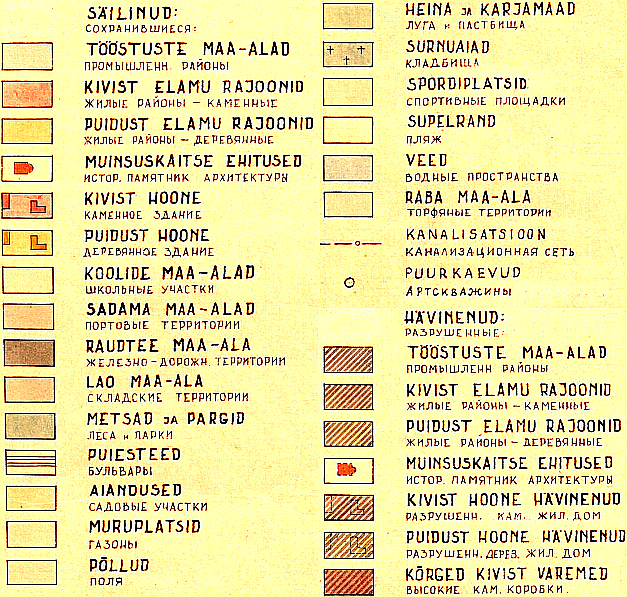 SÄILINUD:
СОХРАНИВШИЕСЯ:
TÖÖSTUSTE MAA-ALAD
ПРОМЫШЛЕНН. РАЙОНЫ
KIVIST ELAMU RAJOONID
ЖИЛЫЕ РАЙОНЫ – КАМЕННЫЕ
PUIDUST ELAMU RAJOONID
ЖИЛЫЕ РАЙОНЫ – ДЕРЕВЯННЫЕ
MUINSUSKAITSE EHITUSED
ИСТОР. ПАМЯТНИК АРХИТЕКТУРЫ
KIVIST HOONE
КАМЕННОЕ ЗДАНИЕ
PUIDUST HOONE
ДЕРЕВЯННОЕ ЗДАНИЕ
KOOLIDE MAA-ALAD
ШКОЛЬНЫЕ УЧАСТКИ
SADAMA MAA-ALAD
ПОРТОВЫЕ ТЕРРИТОРИИ
RAUDTEE MAA-ALA
ЖЕЛЕЗНО-ДОРОЖН. ТЕРРИТОРИИ
LAO MAA-ALA
СКЛАДСКИЕ ТЕРРИТОРИИ
METSAD JA PARGID
ЛЕСА и ПАРКИ
PUIESTEED
БУЛЬВАРЫ
AIANDUSED
САДОВЫЕ УЧАСТКИ
MURUPLATSID
ГАЗОНЫ
PÕLLUD
ПОЛЯ
HEINA JA KARJAMAAD
ЛУГА и ПАСТБИЩА
SURNUAIAD
КЛАДБИЩА
SPORDIPLATSID
СПОРТИВНЫЕ ПЛОЩАДКИ
SUPELRAND
ПЛЯЖ
VEED
ВОДНЫЕ ПРОСТРАНСТВА
RABA MAA-ALA
ТОРФЯНЫЕ ТЕРРИТОРИИ
KANALISATSIOON
КАНАЛИЗАЦИОННАЯ СЕТЬ
PUURKAEVUD
АРТСКВАЖИНЫ
HÄVINENUD:
РАЗРУШЕННЫЕ:
TÖÖSTUSTE MAA-ALAD
ПРОМЫШЛЕНН РАЙОНЫ
KIVIST ELAMU RAJOONID
ЖИЛЫЕ РАЙОНЫ – КАМЕННЫЕ
PUIDUST ELAMU RAJOONID
ЖИЛЫЕ РАЙОНЫ – ДЕРЕВЯННЫЕ
MUINSUSKAITSE EHITUSED
ИСТОР. ПАМЯТНИК АРХИТЕКТУРЫ
KIVIST HOONE HÄVINENUD
РАЗРУШЕНН. КАМ. ЖИЛ. ДОМ
PUIDUST HOONE HÄVINENUD
РАЗРУШЕНН. ДЕРЕВ. ЖИЛ. ДОМ
KÕRGED KIVIST VAREMED
ВЫСОКИЕ КАМ. КОРОБКИ.